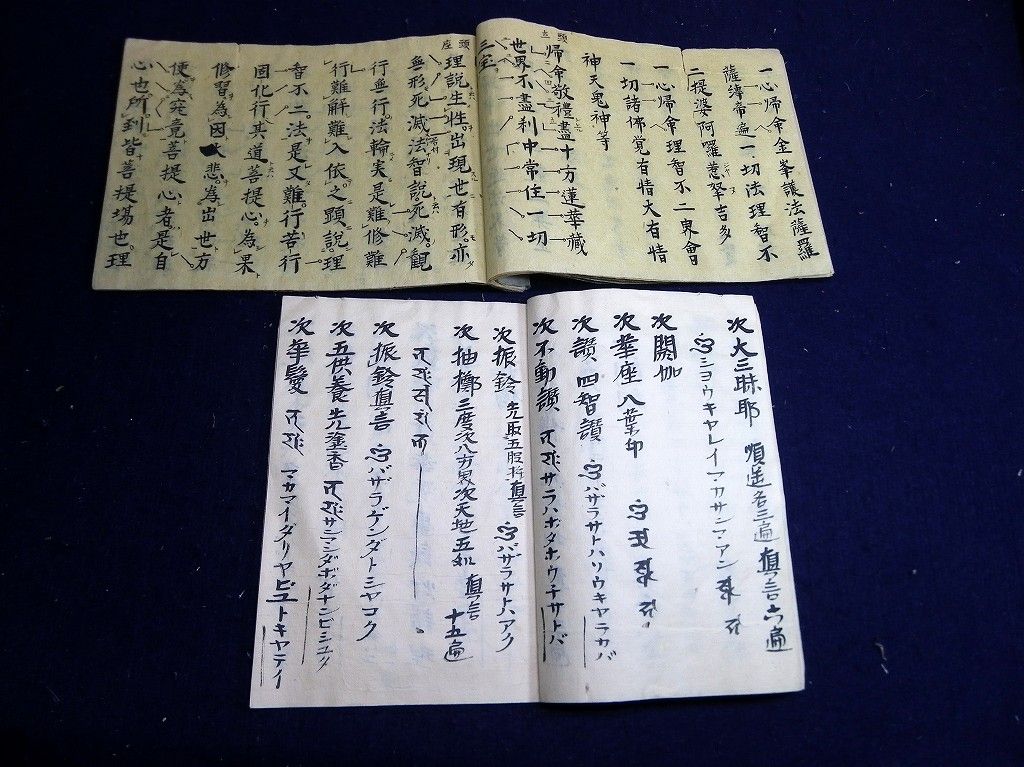 一心帰命金峯議法薩羅
薩縛帝遍一切法理智不
二提婆阿羅惹拏吉多
一心帰命理智不二界會
一切諸佛覚有情大有情
神天鬼神等
帰命敬禮盡十方蓮華蔵
世界不盡刹中常住一切
三宝
頭座
理説生性出現世有形亦
無形死滅法智説死滅觀
行無行法輪実是難修難
行難解難入依之顕説理
智不二法是又難行苦行
因化行其道菩提心為果
修習為因大悲為出世方
便為究竟菩提心者是自
心也所到皆菩提場也理
次大三昧耶 順逆各三遍 真言六遍
シヨウキヤレイマカサンマアン
次閼伽
次華座 八葉印
次讃 四智讃 バザラサトハソウキヤラカバ
次不動讃 サラハホタホウチサトバ
次振鈴 先取五股杵真言 バザラサトハアク
次抽擲三度次八方 次天地五処 真言十五遍
次振鈴真言 バザラゲンダトシヤコク
次五供養先塗香 サンマンダボダナンビシユダ
次華鬘 マカマイダリヤビユトキヤテイ